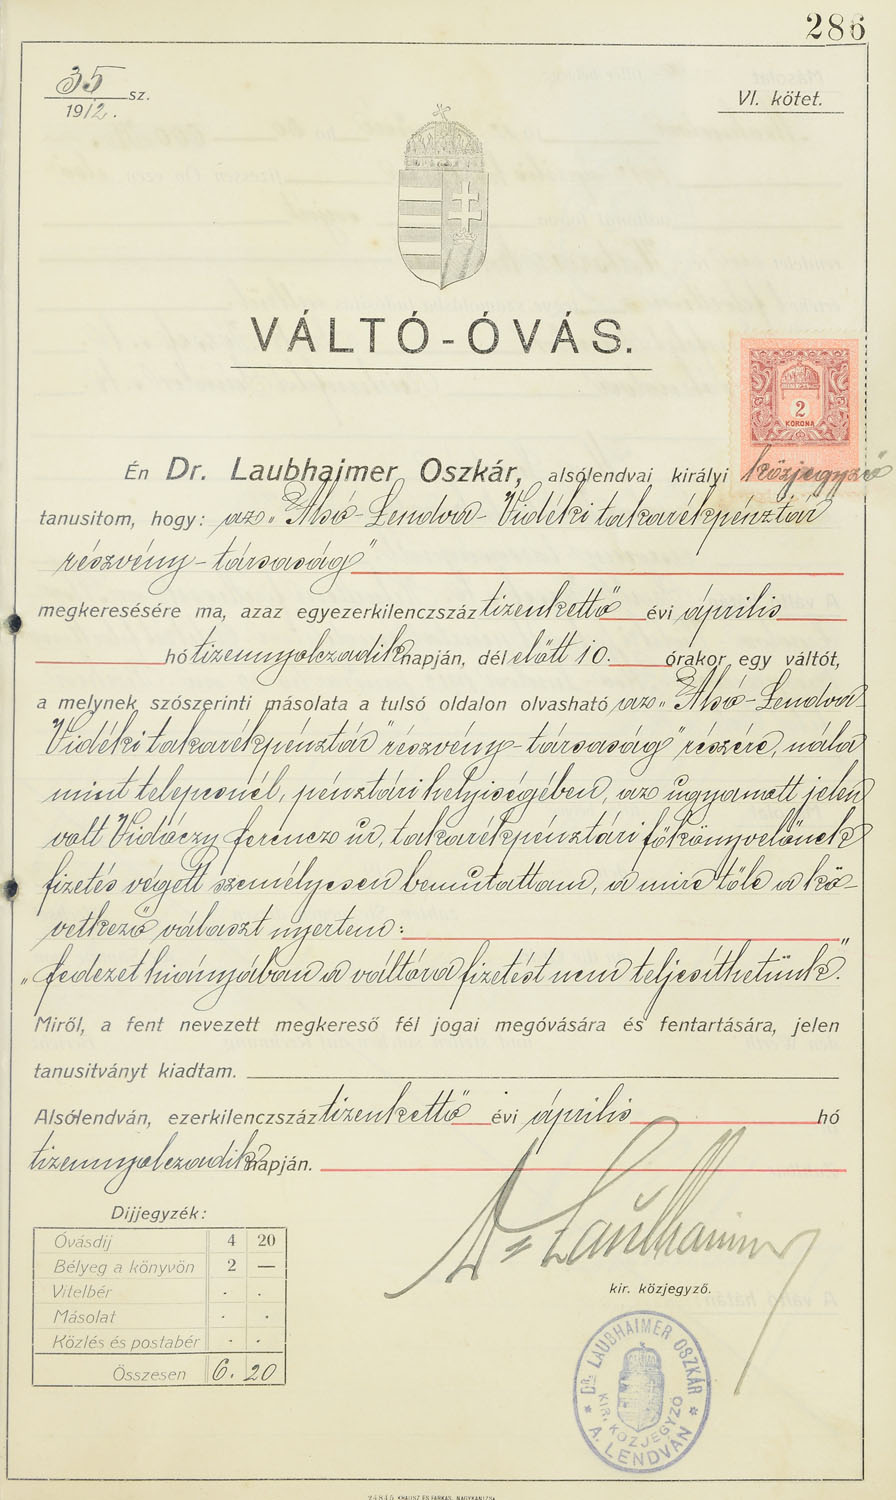 286
35 sz.
1912.
VI. kötet.
VÁLTÓ-ÓVÁS.
2
KORONA
Én Dr. Laubhaimer Oszkár, alsólendvai királyi közjegyző
tanusitom, hogy: az „Alsó-Lendva-Vidéki takarékpénztár
részvény-társaság"
megkeresésére ma, azaz egyezerkilenczszáz tizenkettő évi április
hó tizennyolczadik napján, dél előtt 10. órakor egy váltót,
a melynek szószerinti másolata a tulsó oldalon olvasható az „Alsó-Lendva-
Vidéki takarékpénztár" részvény-társaság" részére, nála
mint telepesnél, pénztári helyiségében, az ugyanott jelen
volt Vidáczy Ferencz úr, takarékpénztári főkönyvelőnek
fizetés végett személyesen bemutattam, a mire tőle a kö-
vetkező választ nyertem:
„fedezet hiányában a váltóra fizetést nem teljesíthetünk."
Miről, a fent nevezett megkereső fél jogai megóvására és fentartására, jelen
tanusitványt kiadtam.
Alsólendván, ezerkilenczszáz tizenkettő évi április hó
tizennyolczadik napján.
Dijjegyzék:
Óvásdij 4 20
Bélyeg a könyvön 2 —
Vitelbér . .
Másolat . .
Közlés és postabér . .
Összesen 6. 20
Dr Laubhaimer
kir. közjegyző.
* DR. LAUBHAIMER OSZKÁR *
KIR. KÖZJEGYZŐ
A. LENDVÁN
24845 KRAUSZ ÉS FARKAS, NAGYKANIZSA